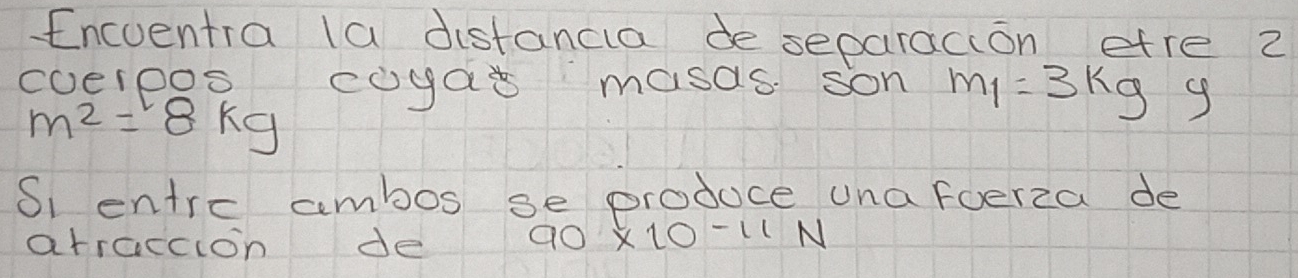 Encuentra la distancia de separación etre 2
cuerpos cuyas masas son m1 = 3 Kg y
m2 = 8 Kg
Si entre ambos se produce una fuerza de
atracción de 90 x 10 - 11 N